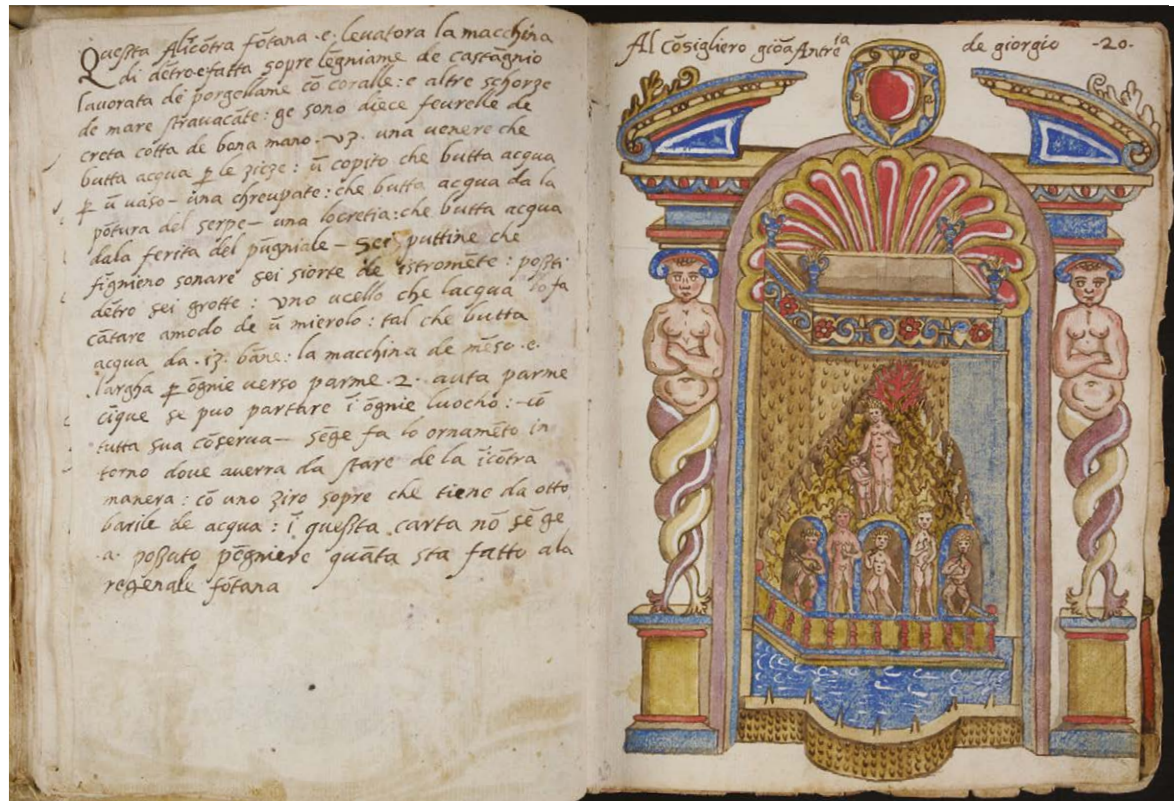 Questa Alicõtra fõtana .e. levatora la macchina
di dẽtro e fatta sopre legniame de castagnio
lavorata de porgellame cõ coralle: e altre schorze
de mare stravacãte: ge sono diece feurelle de
creta cotta de bona mano . vz. una venere che
butta acqua p̱ le zizze: ũ copito che butta acqua
p̱ ũ vaso – una chreupate: che butta acqua da la
põtura del serpe – una locretia: che butta acqua
dala ferita del pugniale – sei puttine che
fignieno sonare sei siorte de istromẽte: posti
dẽtro sei grotte: uno ucello che lacqua lo fa
cãtare amodo de ũ mierolo: tal che butta
acqua da .13. bãne: la macchina de mẽso .e.
largha p̱ õgnie verso parme .2. auta parme
cique se puo partare ĩ õgnie luocho: – cõ
tutta sua cõserva – sẽge fa lo ornamẽto in
torno dove averra da stare de la ĩcõtra
manera: cõ uno ziro sopre che tiene da otto
barile de acqua: ĩ questa carta nõ sẽ ge
.a. possuto pẽgniere quãta sta fatto ala
regenale fõtana
Al cõsigliero gioã Antreia de giorgio -20-